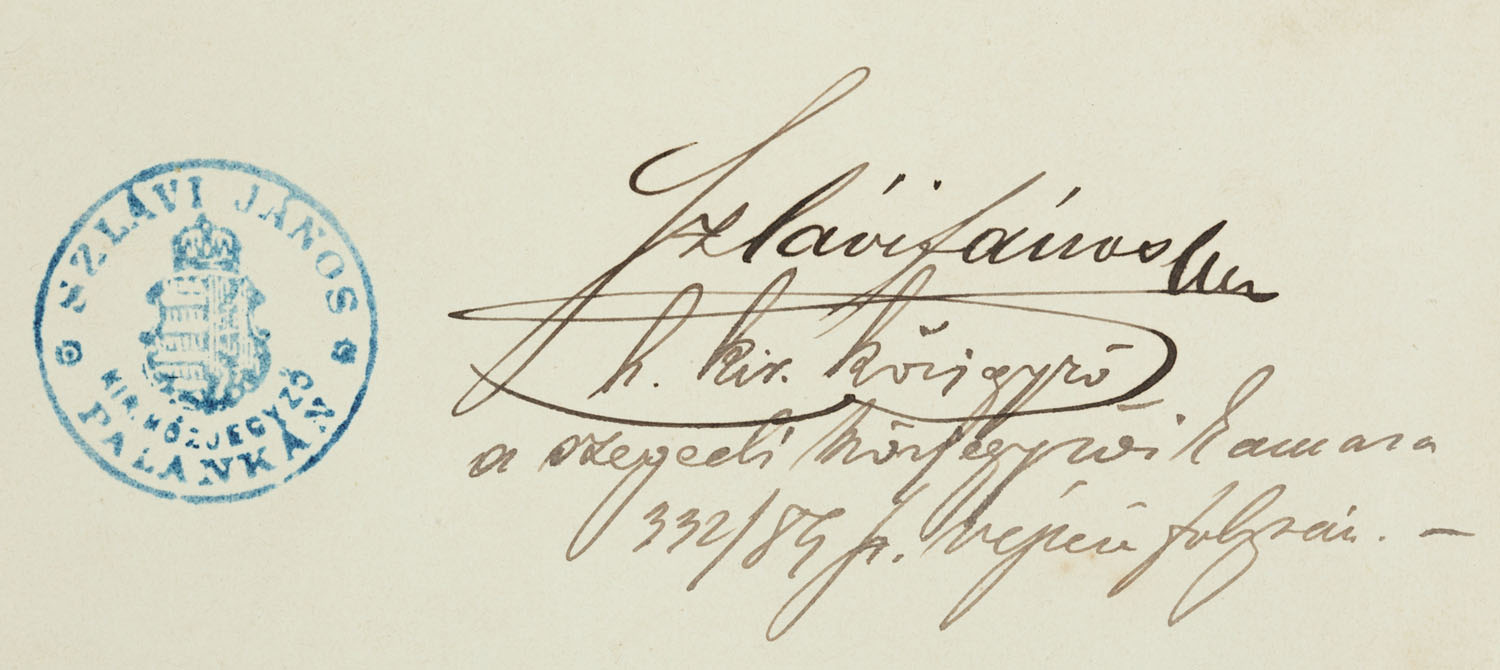 SZLÁVI JÁNOS
KIR. KÖZJEGYZŐ
PALÁNKÁN
Szlávi János
h. kir. közjegyző
a szegedi közjegyzői kamara
332/89 sz. végzése folytán. —